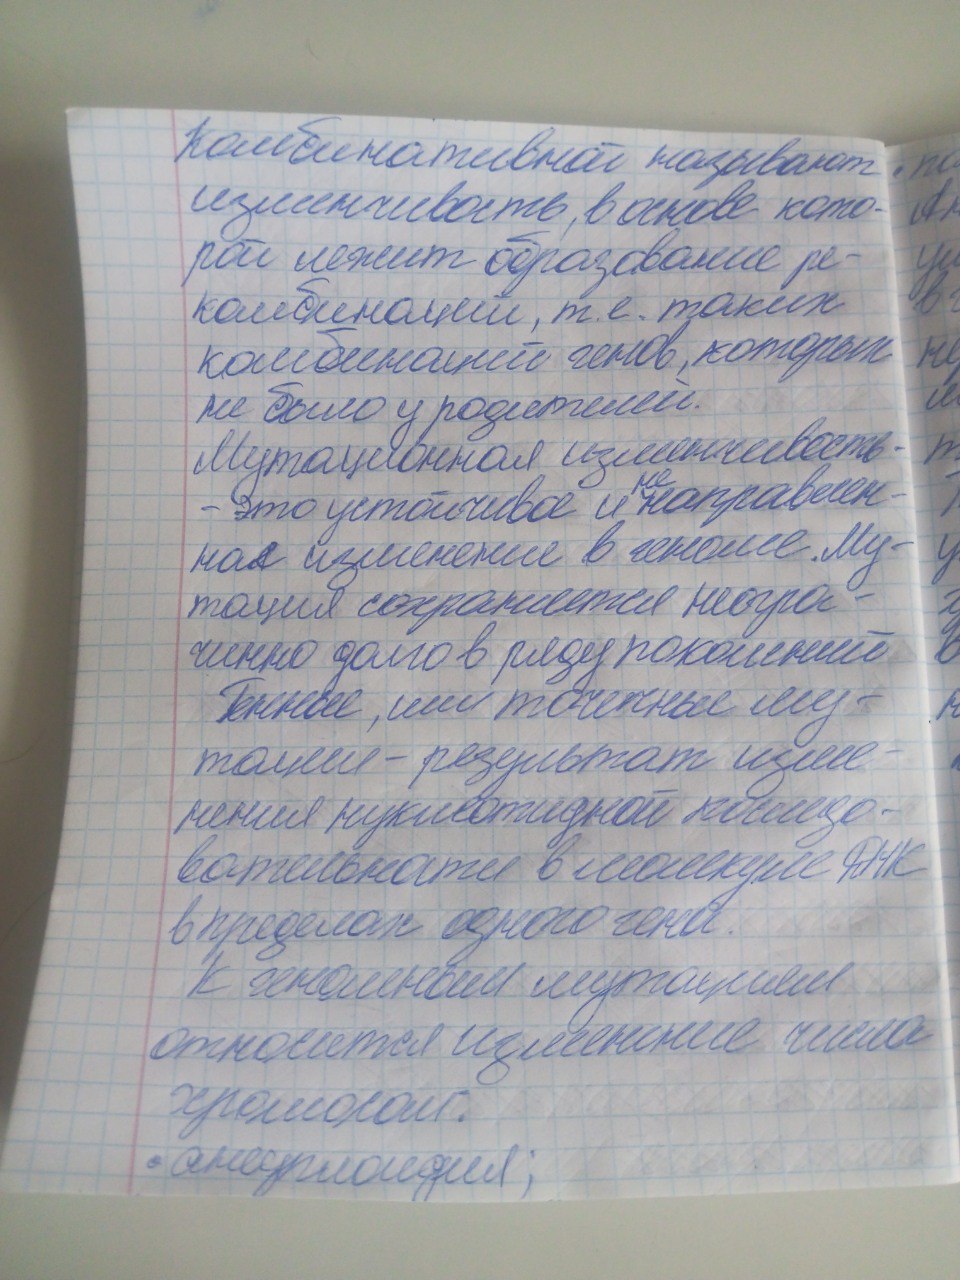 Комбинативной называют
изменчивость, в основе кото-
рой лежит образование ре-
комбинаций, т.е. таких
комбинаций генов, которых
не было у родителей.
Мутационная изменчивость-
- Это устойчивое и ненаправлен-
ное изменение в геноме. Му-
тация сохраняется неогра-
чинно долго в ряду поколений
Генные, или точечные му-
тации - результат изме-
нения нуклеотидной последо-
вательности в молекуле ДНК
в пределах одного гена.
К геномным мутациям
относится изменение числа
хромосом:
• анеуплоидия;